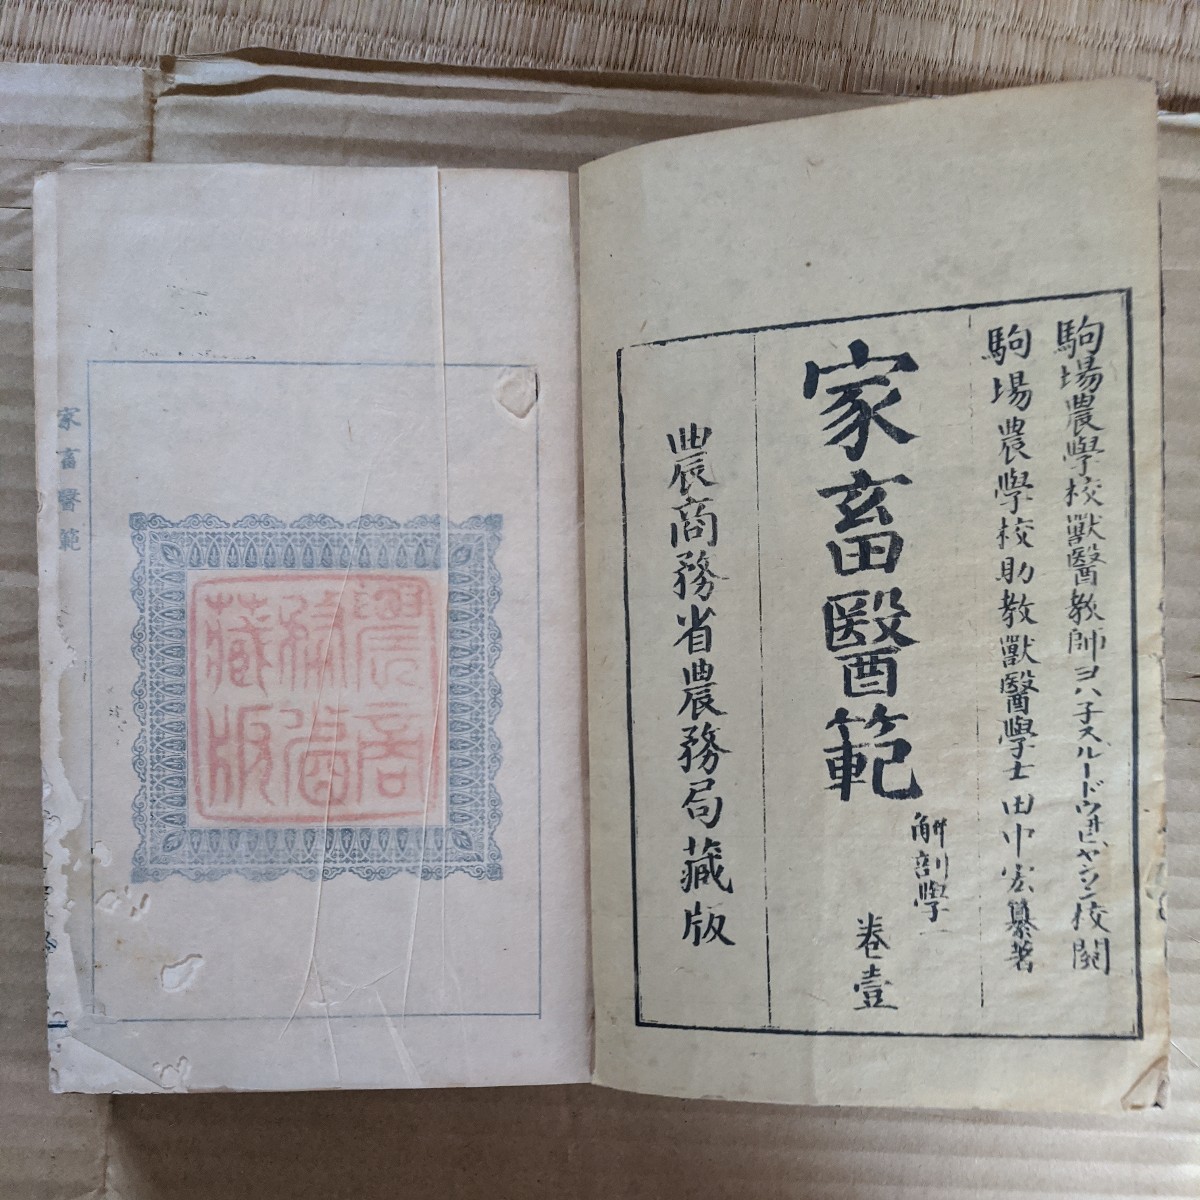 駒場農學校獸醫教師ヨハ子スルードウ井ヒヤンソン校閲
駒場農學校助教獸醫學士田中宏纂著
家畜醫範
解剖學一
卷壹
農商務省農務局藏版
農商
務省
藏版
家畜醫範